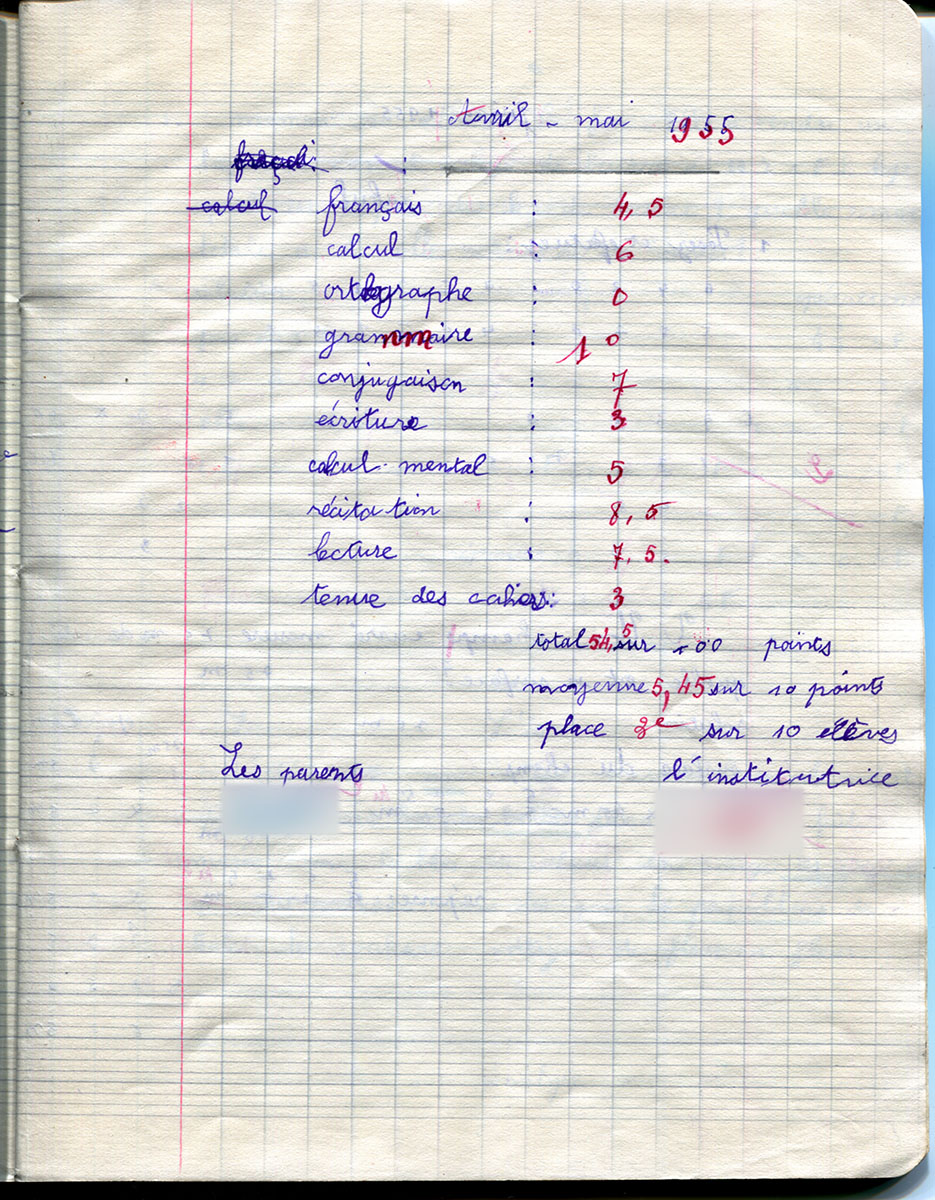 Avril - mai 1955
français :
calcul français : 4,5
calcul : 6
orthographe : 0
grammaire : 10
conjugaison : 7
écriture : 3
calcul mental : 5
récitation : 8,5
lecture : 7,5.
tenue des cahiers : 3
total 54,5 sur 100 points
moyenne 5,45 sur 10 points
place 3e sur 10 élèves
Les parents l'institutrice